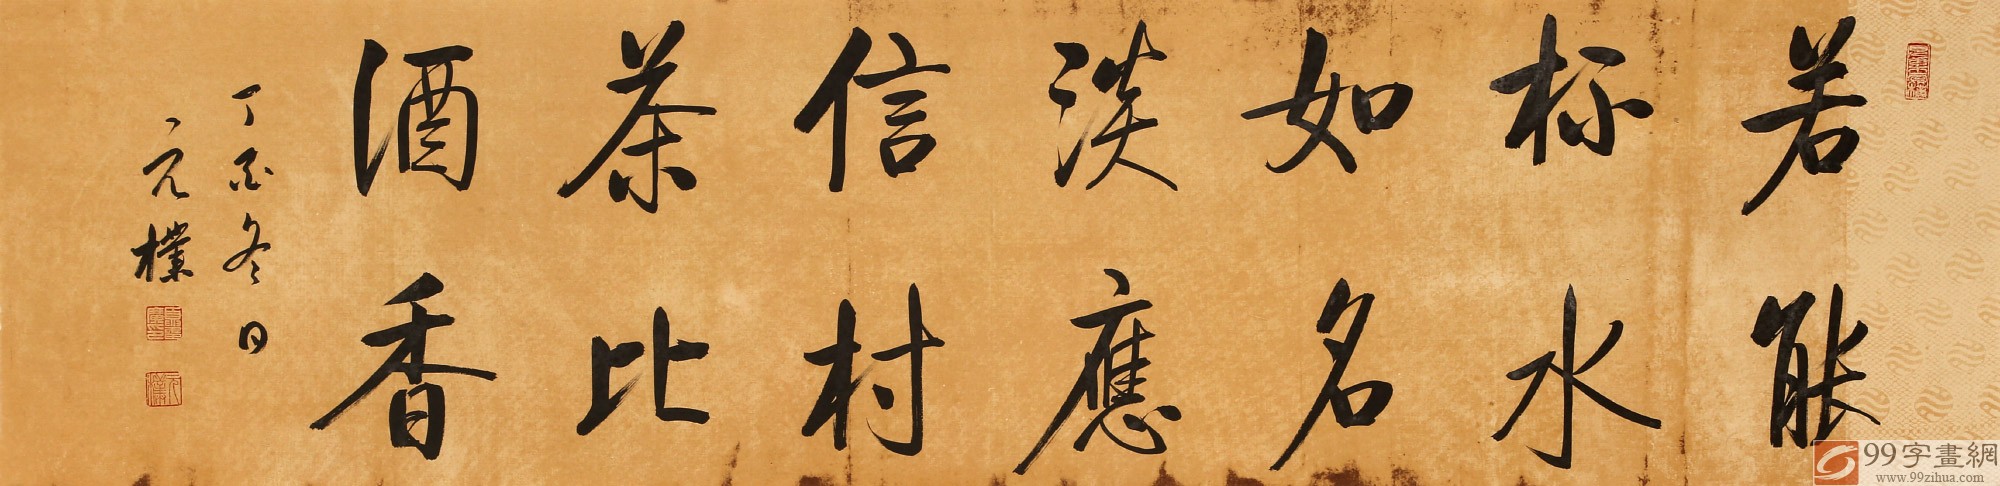 若能
杯水
如名
淡應
信村
茶比
酒香
丁酉冬日
元樸
99字畫網
www.99zihua.com